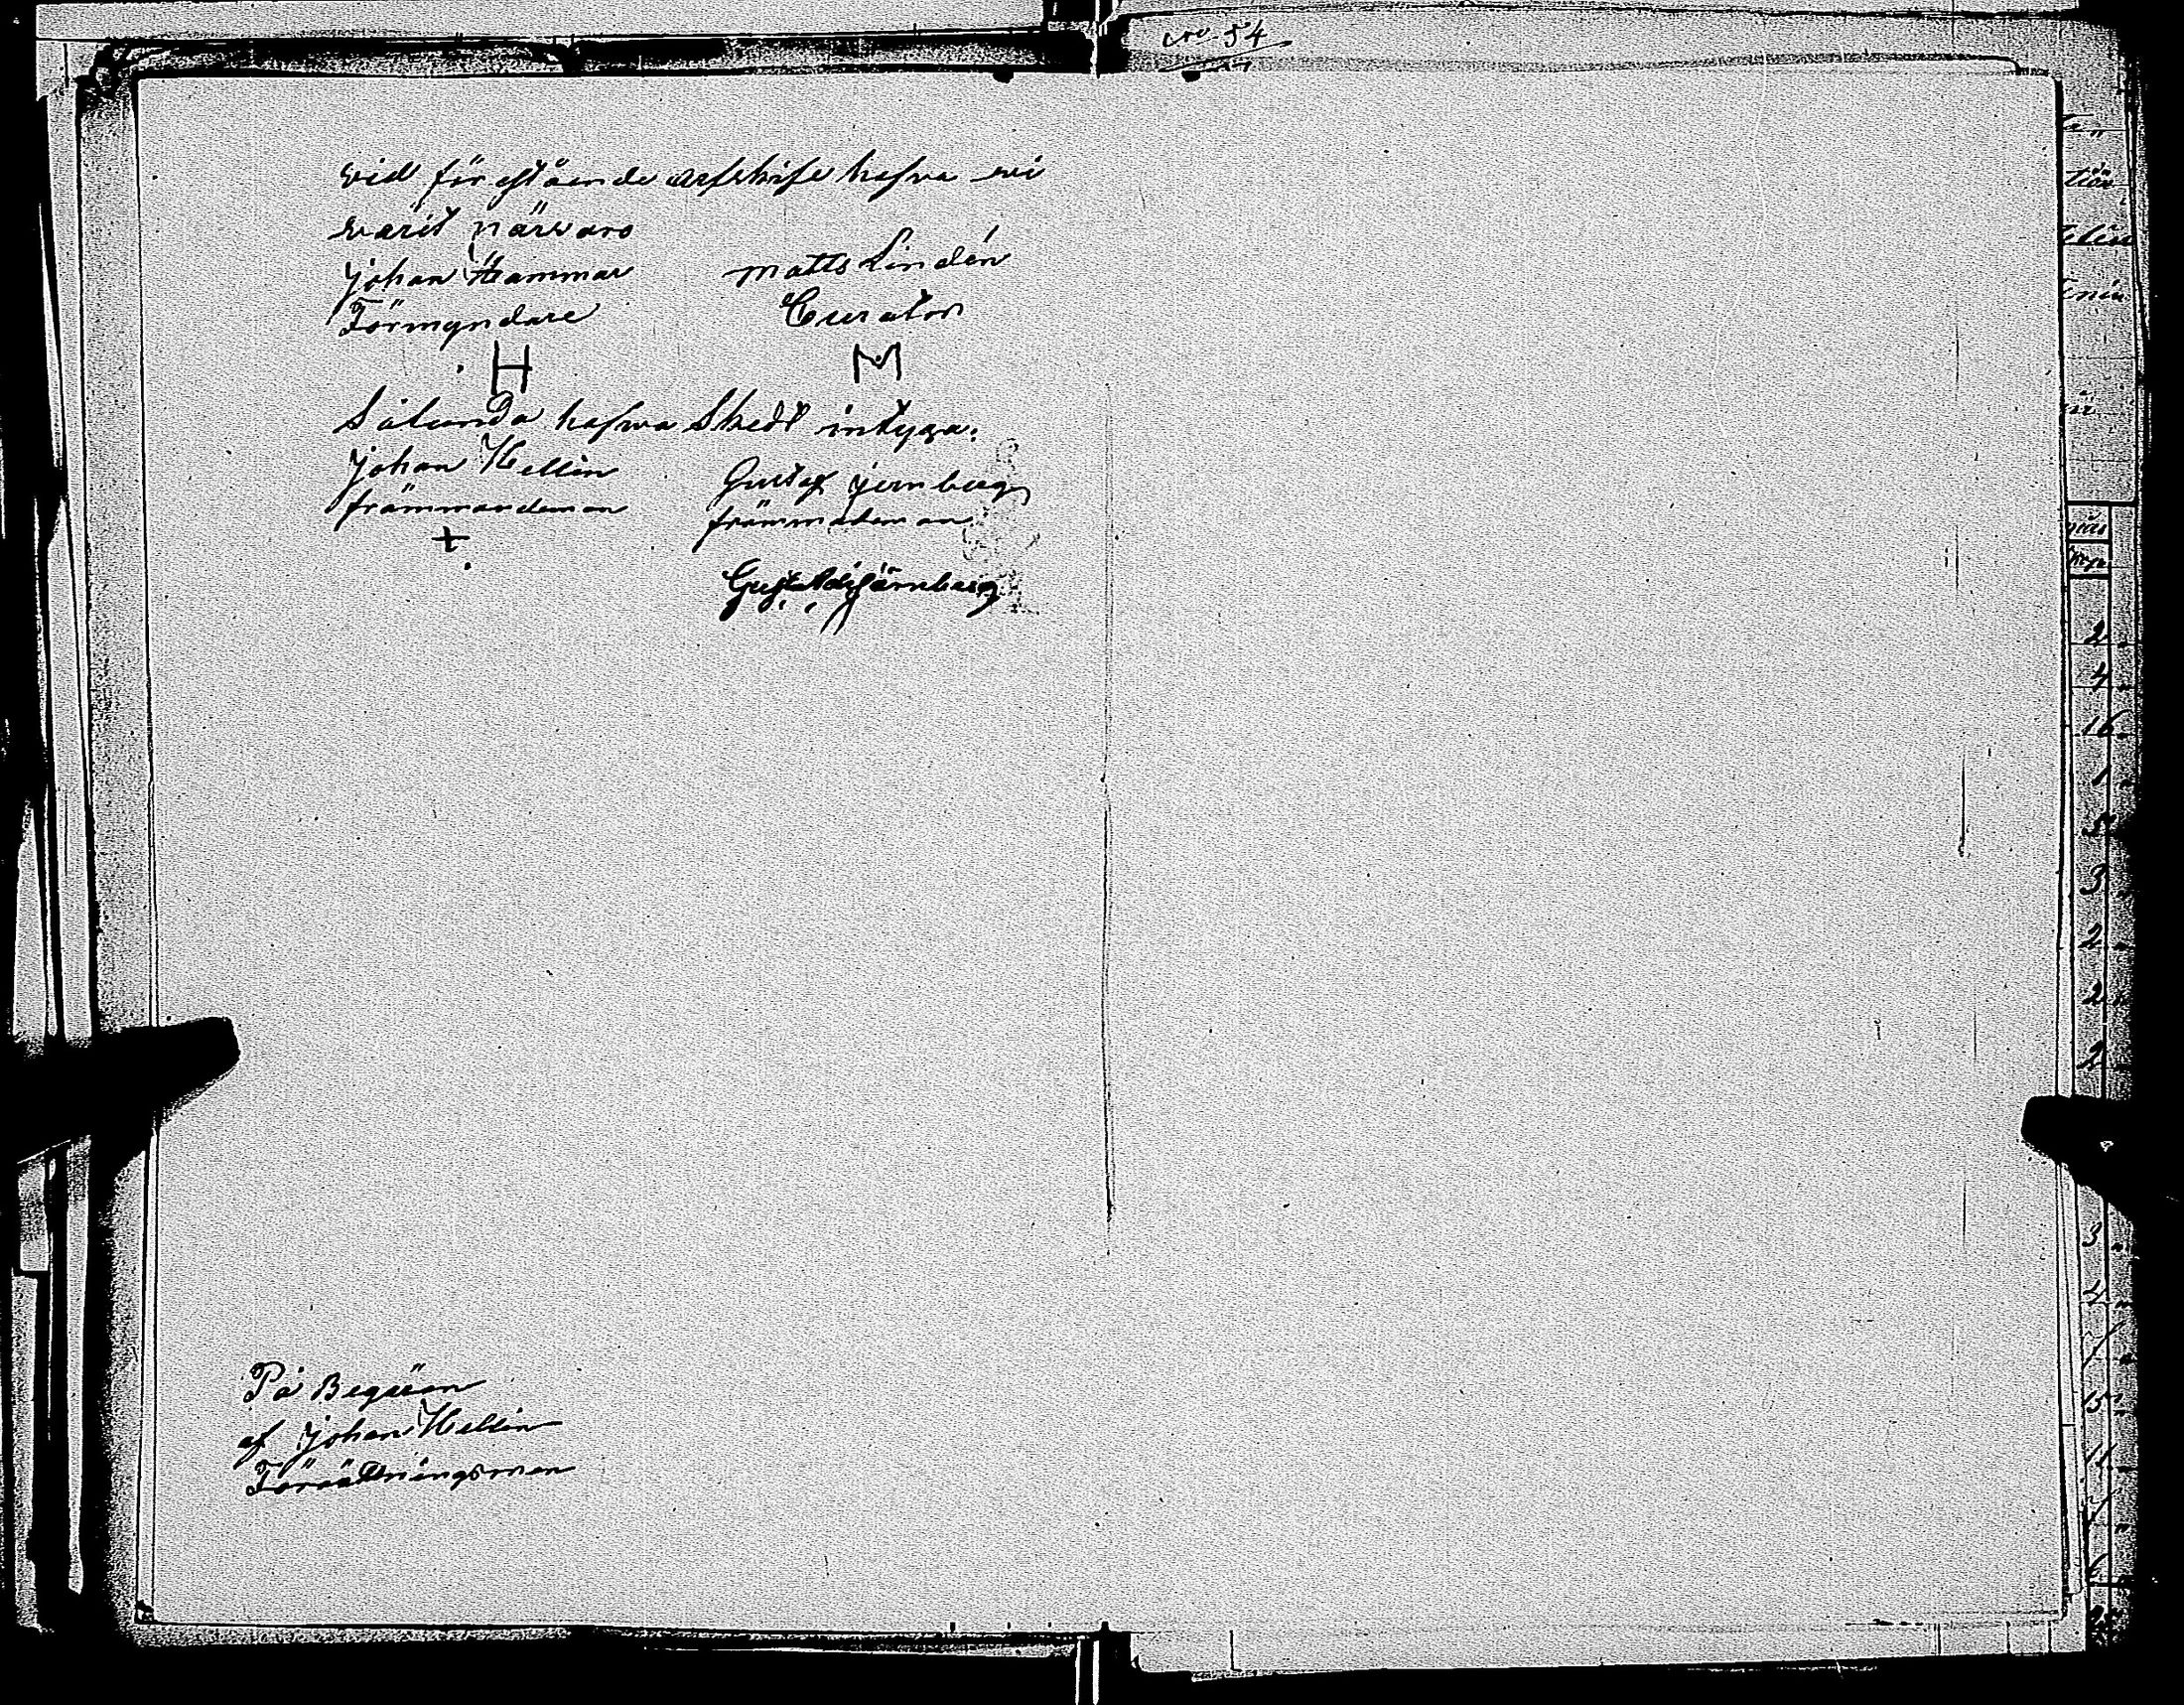 No 54
vid förestående arfskife hafva vi
varit närvaro
Johan Hammar Matts Lindén
Förmyndare Curator
H M
Sålunda hafwa Skedt intyga:
Johan Hellin Gustaf Jernberg
främmandeman främmademan
+
Gustaf Järnberg
På Begäran
af Johan Hellin
Förrättningsman